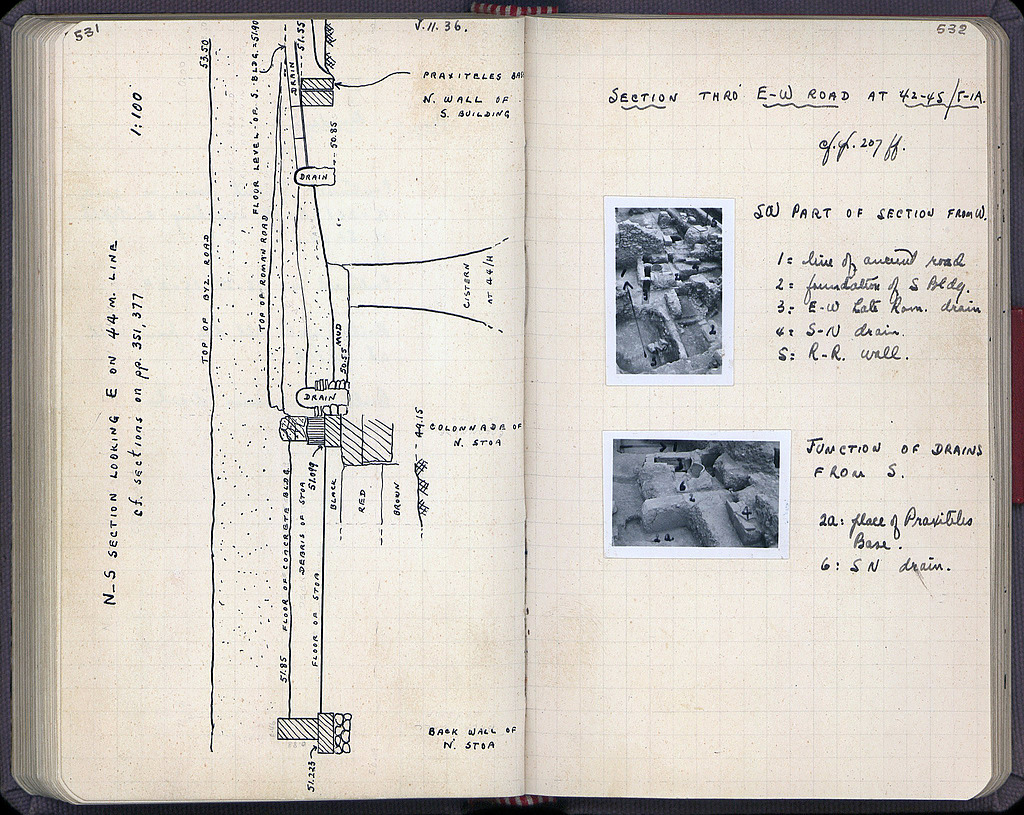 531
V.11.36.
N–S SECTION LOOKING E ON 44 M. LINE
cf. sections on pp. 351, 377
1:100
TOP OF BYZ. ROAD
53.50
TOP OF ROMAN ROAD
FLOOR LEVEL OF S. BLDG. = 51.90
DRAIN
51.55
PRAXITELES BAS
N. WALL OF
S. BUILDING
50.85
DRAIN
CISTERN
AT 44/H
50.55 MUD
DRAIN
49.15
COLONNADE OF
N. STOA
51.85 FLOOR OF CONCRETE BLDG.
DEBRIS OF STOA
51.099
FLOOR OF STOA
BLACK
RED
BROWN
BACK WALL OF
N. STOA
51.223
532
SECTION THRO' E-W ROAD AT 42-45/5-1A.
cf. p. 207 ff.
SW PART OF SECTION FROM W.
1 = line of ancient road
2 = foundation of S Bldg.
3 = E-W Late Rom. drain
4 = S-N drain.
5 = R-R. wall.
JUNCTION OF DRAINS
FROM S.
2a: place of Praxiteles
Base.
6: SN drain.